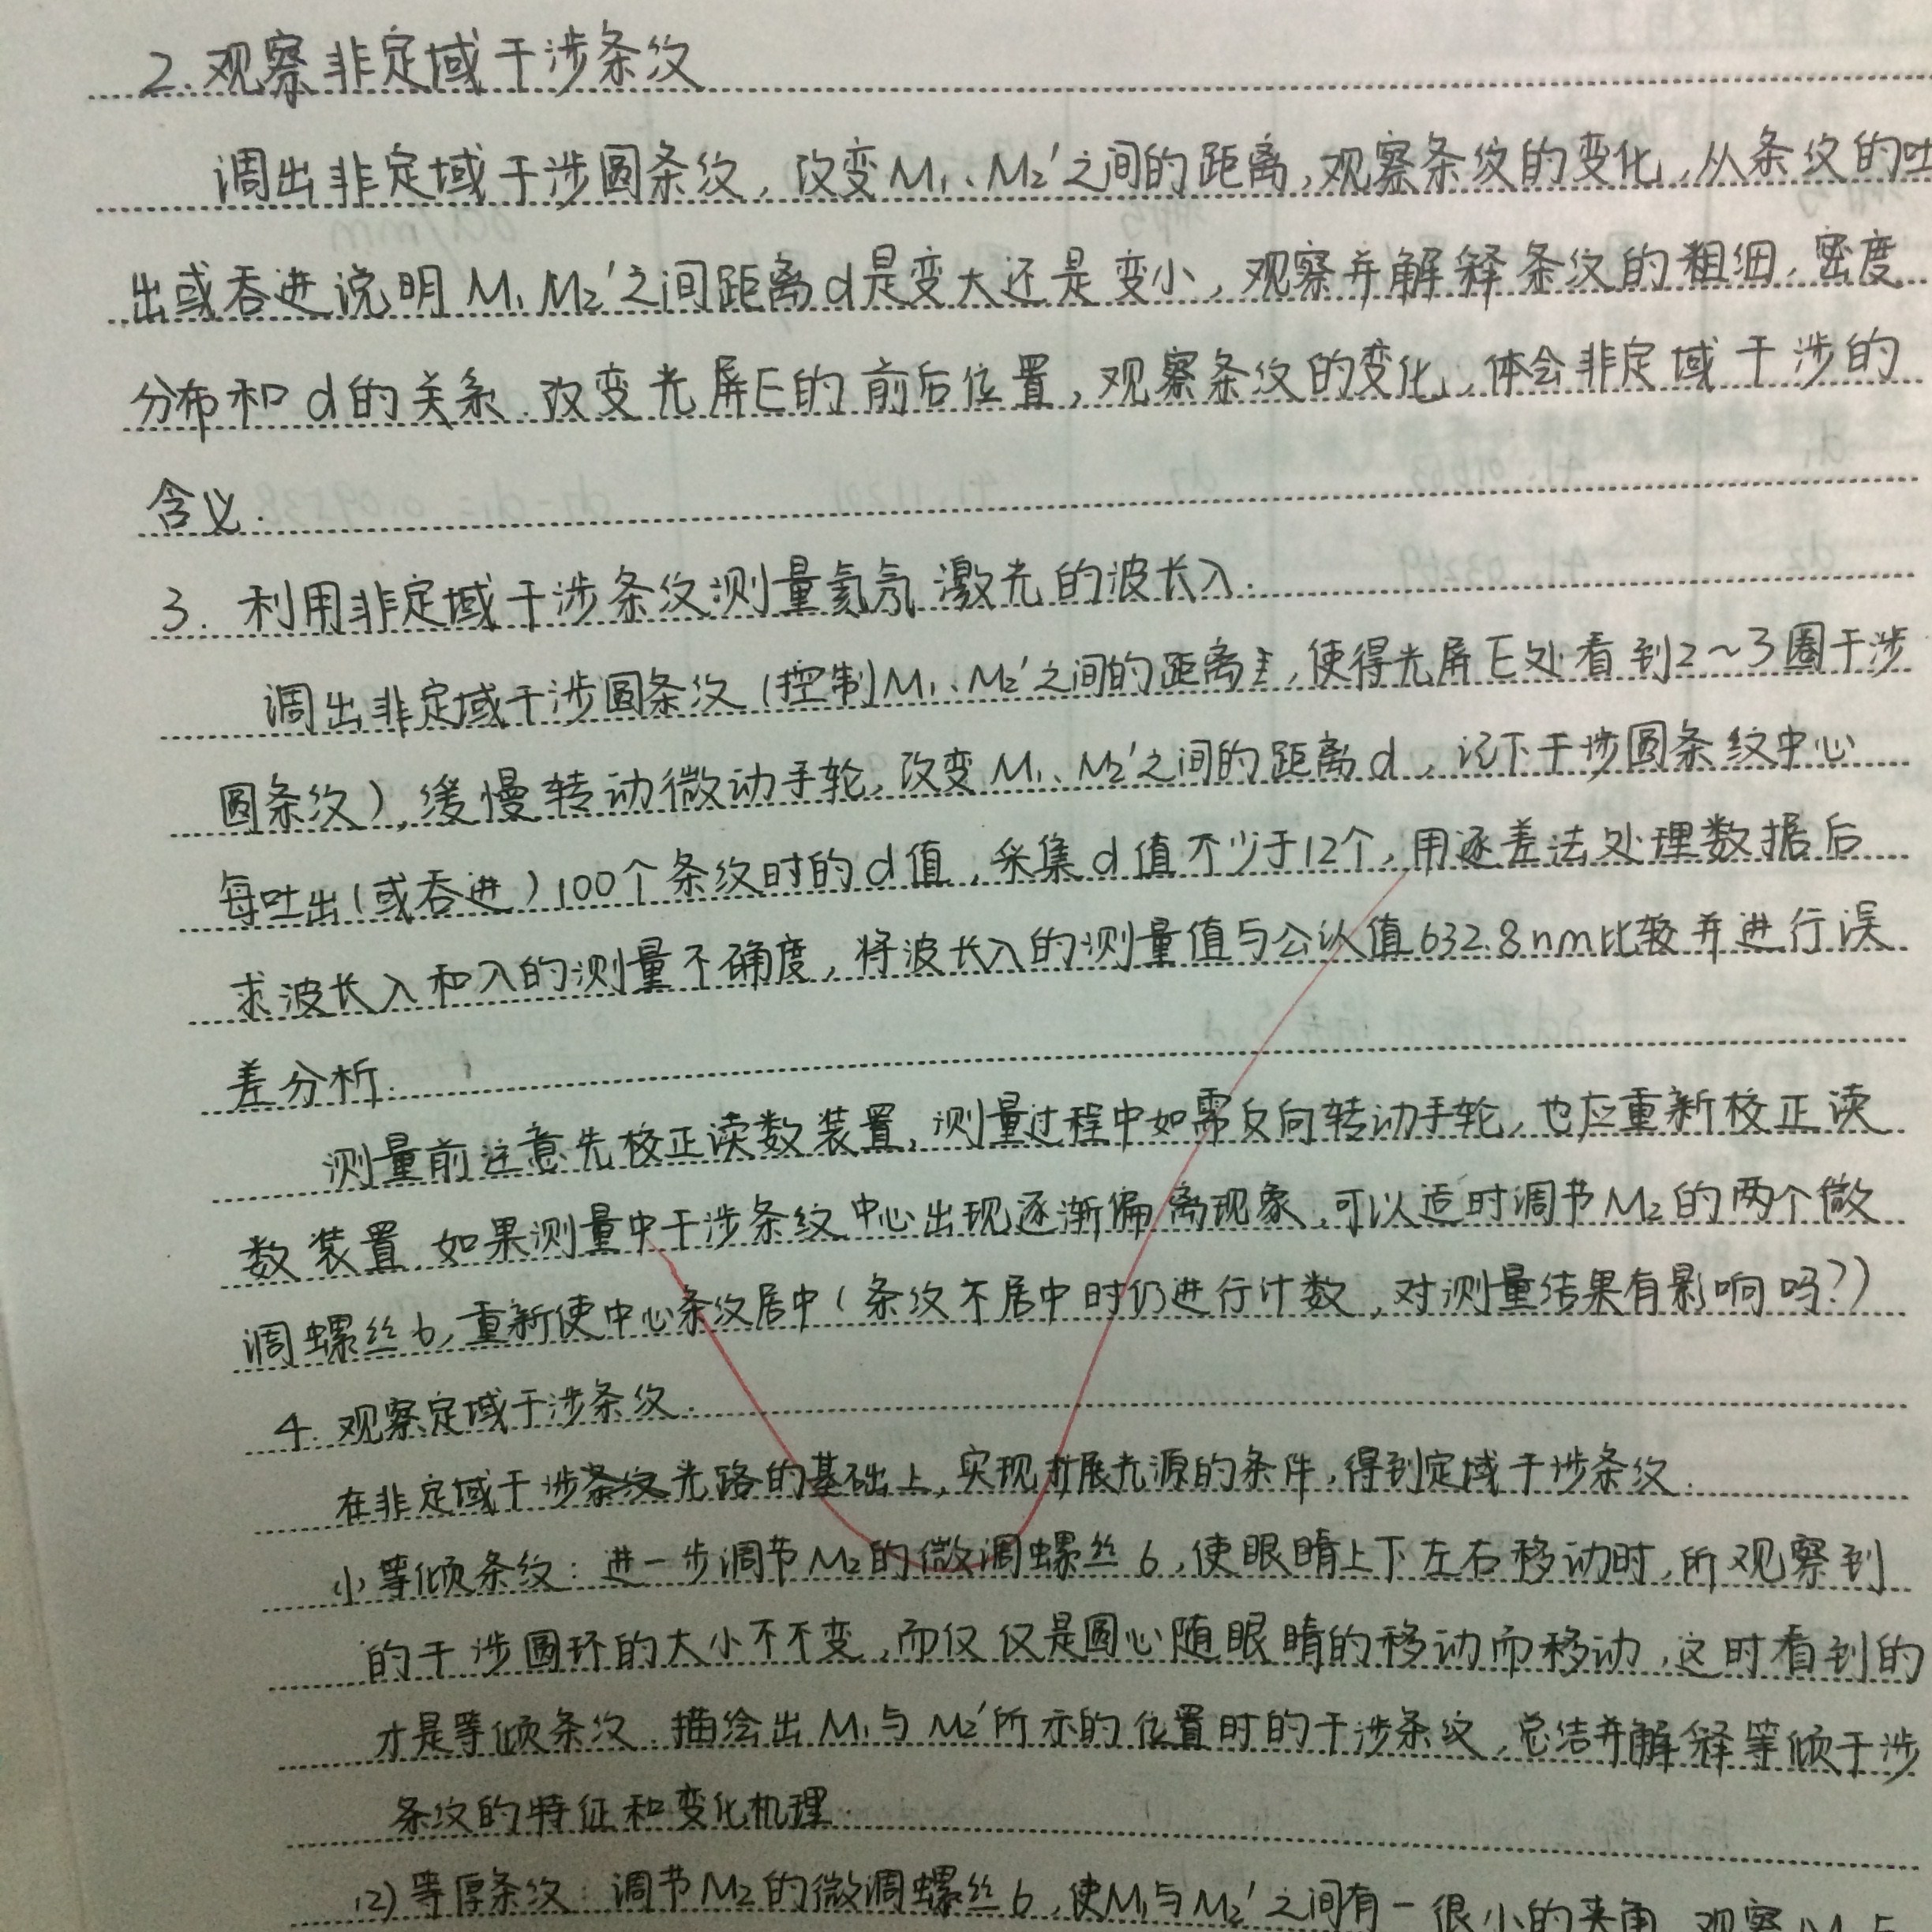 2. 观察非定域干涉条纹
调出非定域干涉圆条纹, 改变M₁、M₂′之间的距离,观察条纹的变化,从条纹的吐
出或吞进说明M₁M₂′之间距离d是变大还是变小,观察并解释条纹的粗细,密度
分布和d的关系.改变光屏E的前后位置,观察条纹的变化,体会非定域干涉的
含义.
3. 利用非定域干涉条纹测量氦氖激光的波长λ.
调出非定域干涉圆条纹(控制M₁、M₂′之间的距离,使得光屏E处看到2~3圈干涉
圆条纹),缓慢转动微动手轮,改变M₁、M₂′之间的距离d,记下干涉圆条纹中心
每吐出(或吞进)100个条纹时的d值,采集d值不少于12个,用逐差法处理数据后
求波长λ和λ的测量不确度,将波长λ的测量值与公认值632.8nm比较并进行误
差分析.
测量前注意先校正读数装置,测量过程中如需反向转动手轮,也应重新校正读
数装置.如果测量中干涉条纹中心出现逐渐偏离现象,可以适时调节M₂的两个微
调螺丝6,重新使中心条纹居中(条纹不居中时仍进行计数,对测量结果有影响吗?)
4. 观察定域干涉条纹.
在非定域干涉条纹光路的基础上,实现扩展光源的条件,得到定域干涉条纹.
(1)等倾条纹:进一步调节M₂的微调螺丝6,使眼睛上下左右移动时,所观察到
的干涉圆环的大小不不变,而仅仅是圆心随眼睛的移动而移动,这时看到的
才是等倾条纹.描绘出M₁与M₂′所示的位置时的干涉条纹,总结并解释等倾干涉
条纹的特征和变化机理.
(2)等厚条纹:调节M₂的微调螺丝6,使M₁与M₂′之间有一很小的夹角,观察M₁与